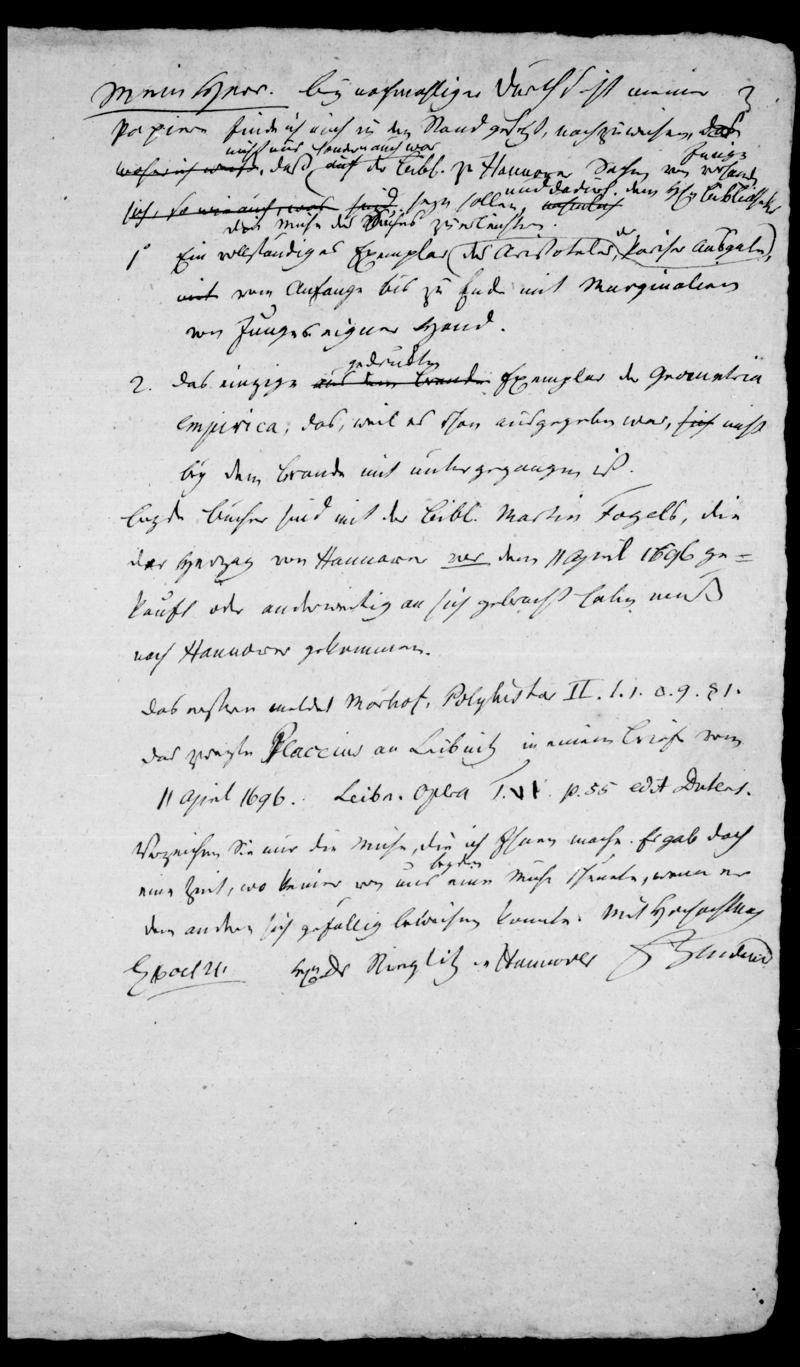 Mein Herr. bey nochmahliger Durchsicht meiner 3
Papiere finde ich mich in den Stand gesetzt, nachzuweisen, das
nicht nur sondern auch was
woher ich weiß, daß auf der Bibl. zu Hannover Sachen von Jungs vorhanden
sich, so wie auch, was sind, seyn sollen, und dadurch dem H. Bibliothekar
die Mühe des Suchens zu erleichtern.
1° Ein vollständiges Exemplar (des Aristoteles, der Pariser Ausgabe),
mit vom Anfange bis zu Ende mit Marginalien
von Jungs eigner Hand.
2. das einzige aus dem Brande gedruckte Exemplar der Geometria
empirica, das, weil es schon ausgegeben war, sich nicht
bey dem Brande mit untergegangen ist.
beyde Bücher sind mit der Bibl. Martin Fogels, die
der Herzog von Hannover vor dem 11 April 1696 ge=
kauft oder anderweitig an sich gebracht haben muß
nach Hannover gekommen.
das erstere meldet Morhof, Polyhistor II. l. 1. 9. 81.
das zweyte Placcius an Leibnitz in einem Briefe vom
11 April 1696. Leibn. Opera T. VI. p. 55 edit Dutens.
Verzeihen Sie mir die Mühe, die ich Ihnen mache. Es gab doch
eine Zeit, wo keiner von uns beyden eine Mühe scheute, wenn er
dem andern sich gefällig beweisen konnte. Mit Hochachtung
Dr in Hannover